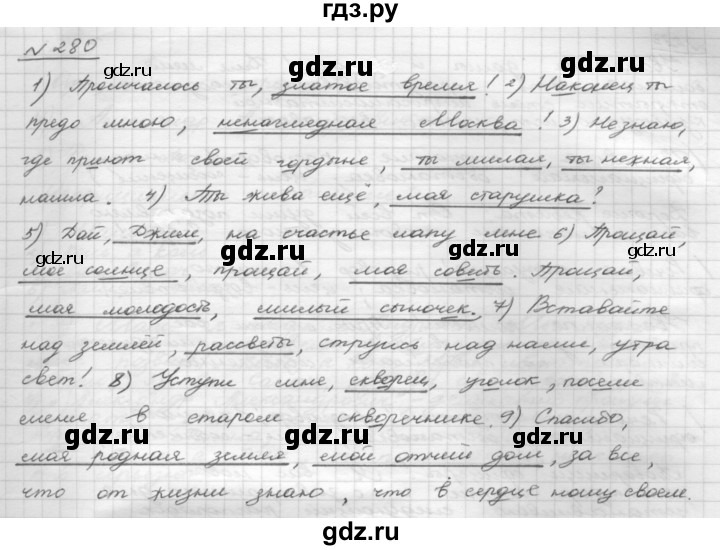 гдз.ру
№ 280
1) Промчалось ты, златое время! 2) Наконец ты
предо мною, ненаглядная Москва! 3) Не знаю,
где приют своей гордыне, ты милая, ты нежная,
нашла. 4) Ты жива ещё, моя старушка?
5) Дай, Джим, на счастье лапу мне 6) Прощай,
мое солнце, прощай, моя совесть. Прощай,
моя молодость, милый сыночек. 7) Вставайте
над землёй, рассветы, струись над нами, утра
свет! 8) Уступи мне, скворец, уголок, посели
меня в старом скворечнике. 9) Спасибо,
моя родная земля, мой отчий дом, за все,
что от жизни знаю, что в сердце ношу своем.
gdz.ru
gdz.ru
gdz.ru
gdz.ru
gdz.ru
gdz.ru
gdz.ru
gdz.ru
gdz.ru
gdz.ru
gdz.ru
gdz.ru
gdz.ru